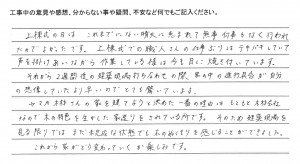 工事中の意見や感想、分からない事や疑問、不安など何でもご記入ください。
上棟式の日は これまでにない晴天に恵まれて無事何事もなく行われ
たのでよかったです。上棟式での職人さんの仕事ぶりはテキパキしていて
声を掛けあいながら 作業している姿は今も目に焼き付いています。
それから2週間後の建築現場打ち合わせの際、家の中の進行具合が自分
の想像していたより早いのでとても驚いています。
ヤマカ木材さんの家を建てようと決めた一番の理由は もともと木材会社
なので木の特色を生かした家造りをされている所です。そのため建築現場を
見る限りでは まだ未完な状態でも木のぬくもりを感じることができました。
これから家がどう変わっていくか楽しみです。